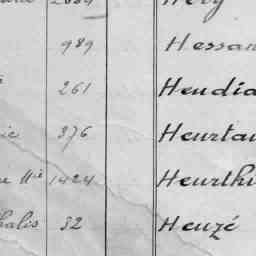 989 Hessan
261 Hendia
376 Heurtau
Mie 1424 Heurthi
halis 32 Heuzé